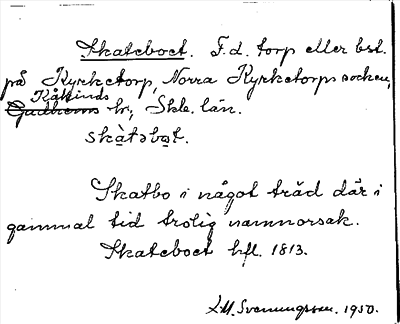 Skateboet. F.d. torp eller bst.
på Kyrketorp, Norra Kyrketorps socken,
Kåkinds
Gudhems hr, Skb. län.
skàtəbo̱t.
Skatbo i något träd där i
gammal tid trolig namnorsak.
Skateboet hfl. 1813.
Svenungsson. 1950.